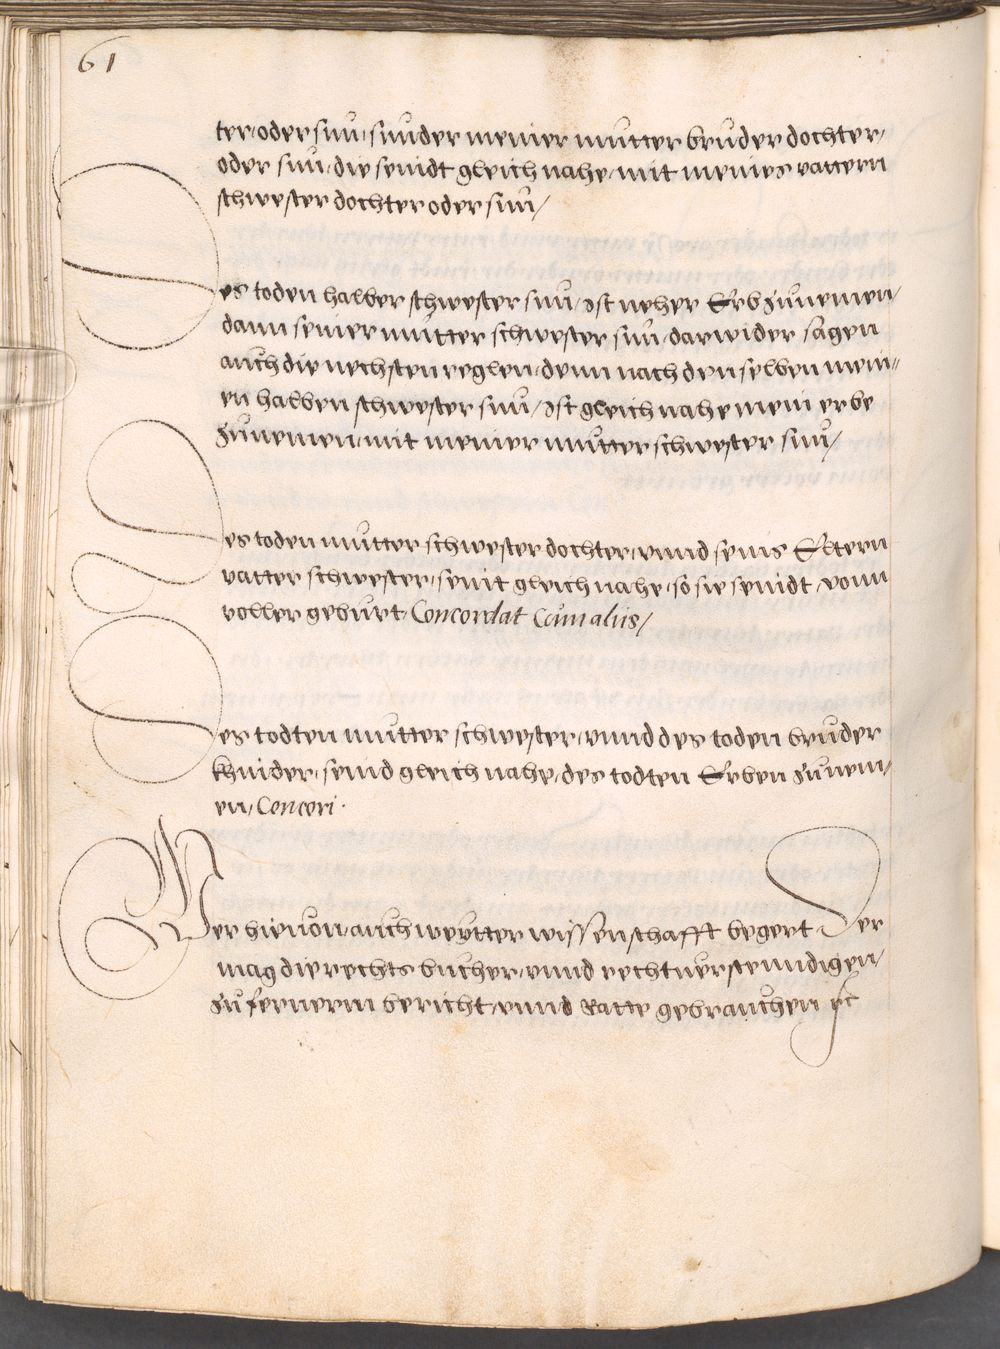 61
ter, oder sun, sunder meiner mutter bruder dochter,
oder sun, die seindt gleich nahe, mit meines vattern
schwester dochter oder sun /
Des toden halber schwester sun / Ist neher Erb zunemen,
dann seiner mutter schwester sun, darwider sagen
auch die nechsten reglen, denn nach denselben mein=
en halben schwester sun / Ist gleich nahe mein erbe
zunemen, mit meiner mutter schwester sun /
Des toden mutter schwester dochter, unnd seins Eltern
vatter schwester, seint gleich nahe, so sie seindt, vonn
voller geburt, Concordat
Des todten mutter schwester, unnd des toden bruder
khinder, seind gleich nahe, des todten Erben zunem,
en,
Wer hievon, auch weytter wissenschafft begert Der
mag die rechts bucher, unnd rechtverstenndigen,
zu fernerm bericht, unnd Ratte gebrauchen etc